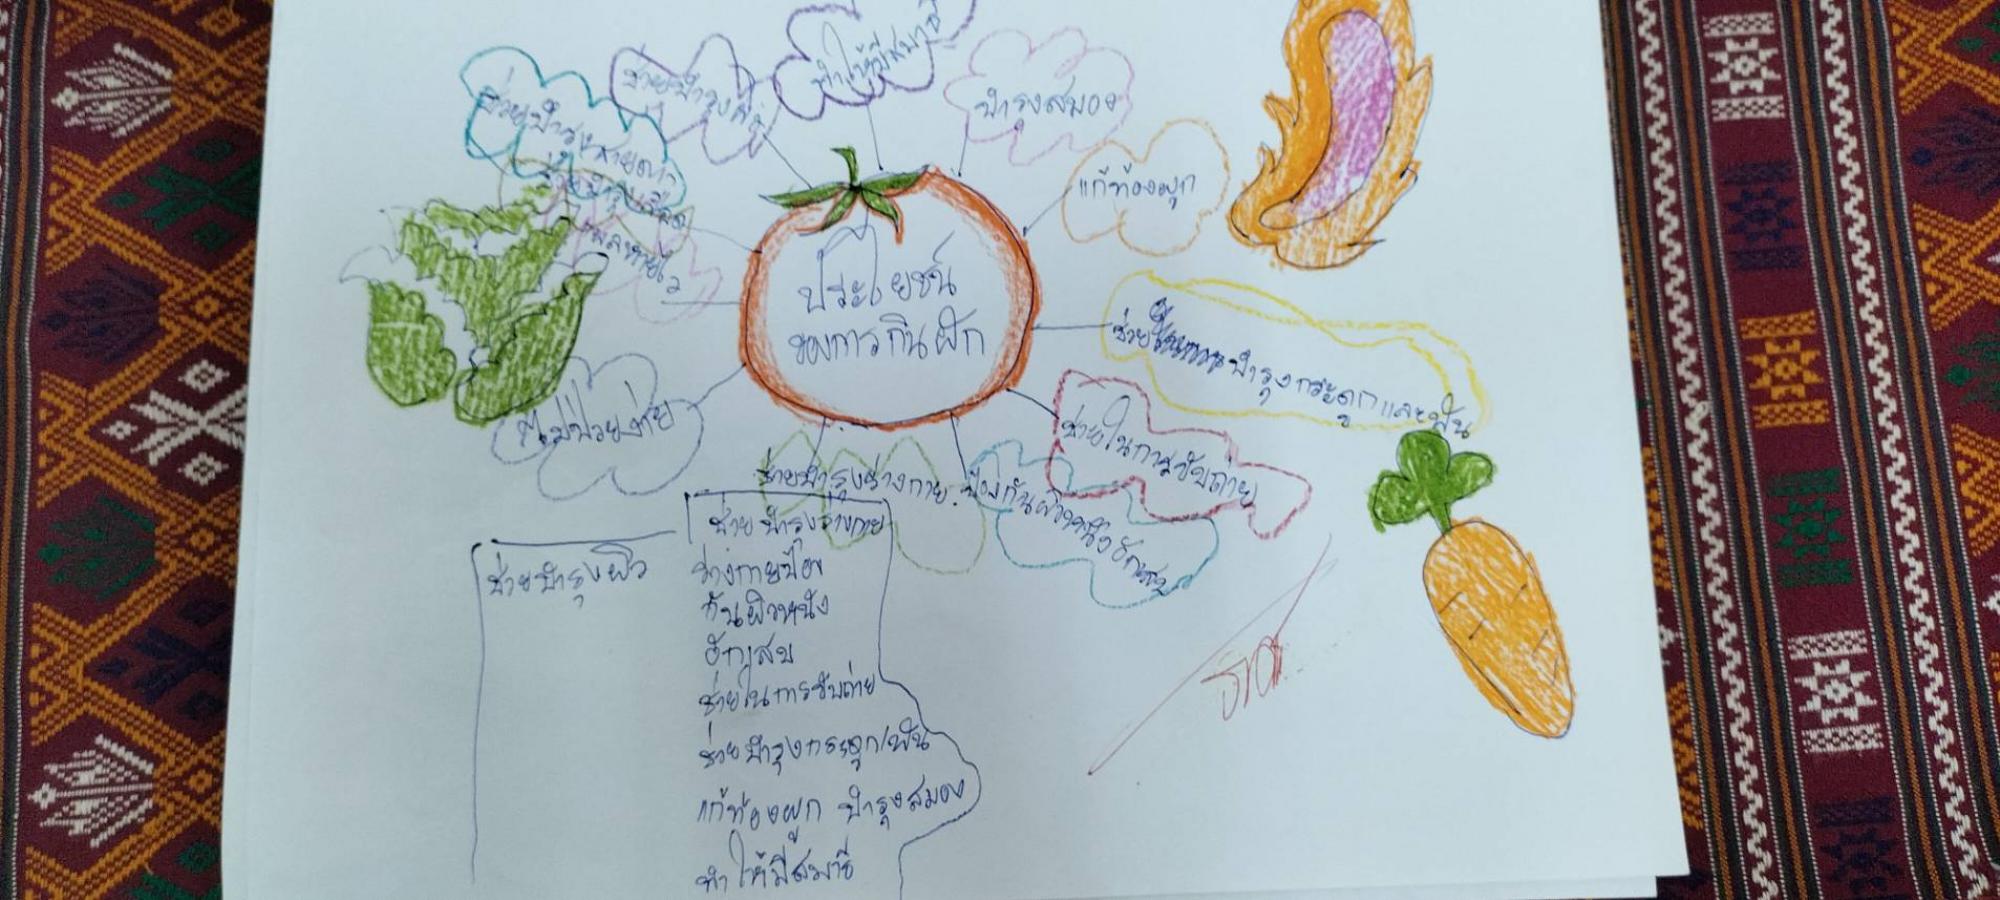 ประโยชน์
ของการกินผัก
ทำให้มีสมาธิ
บำรุงสมอง
แก้ท้องผูก
ช่วยบำรุงกระดูกและฟัน
ช่วยในการขับถ่าย
ป้องกันผิวหนังอักเสบ
ช่วยบำรุงร่างกาย
ไม่ป่วยง่าย
ช่วยบำรุงสายตา
ช่วยบำรุงผิว
ช่วยบำรุงร่างกาย
ร่างกายป้อง
กันผิวหนัง
อักเสบ
ช่วยในการขับถ่าย
ช่วยบำรุงกระดูก/ฟัน
แก้ท้องผูก บำรุงสมอง
ทำให้มีสมาธิ